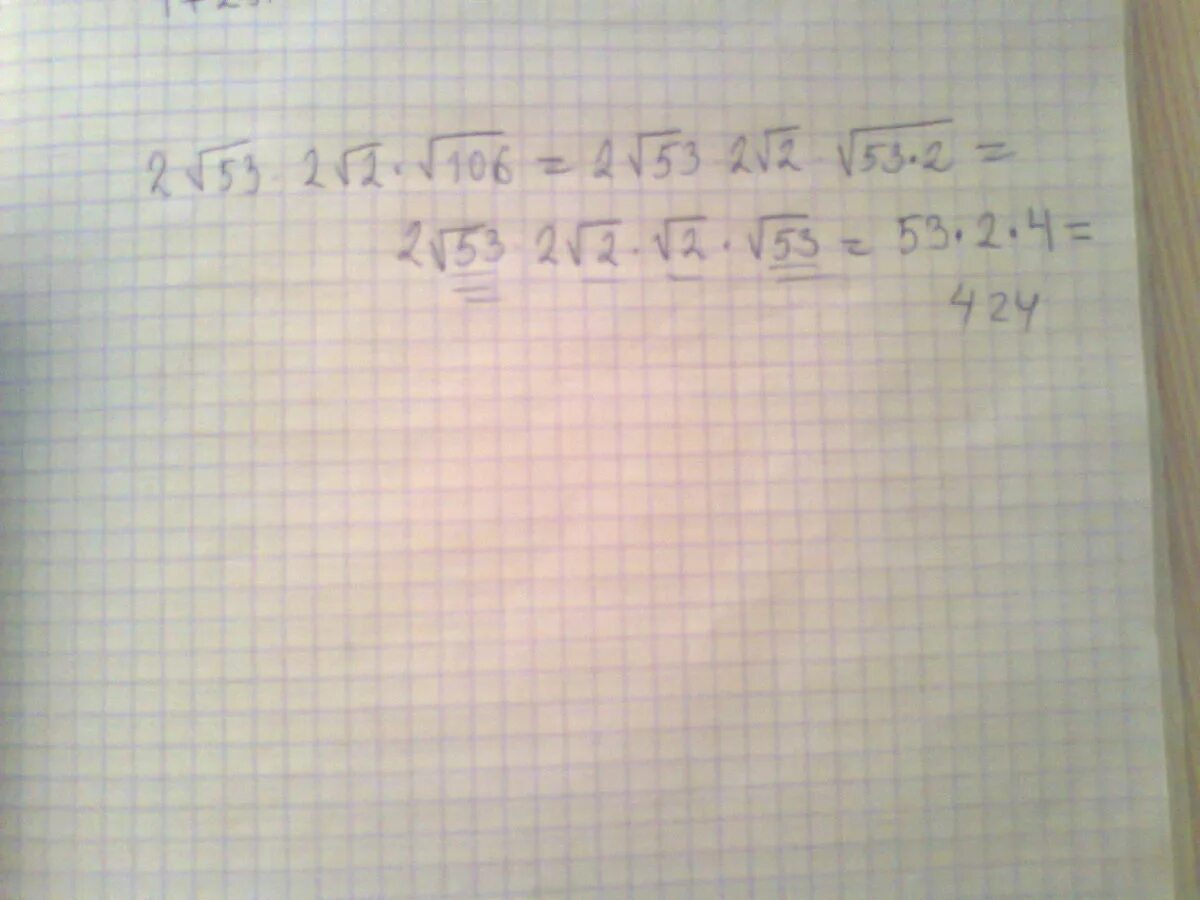 2√53 2√2·√106 = 2√53 2√2 √53·2 =
2√53 2√2·√2·√53 = 53·2·4=
424